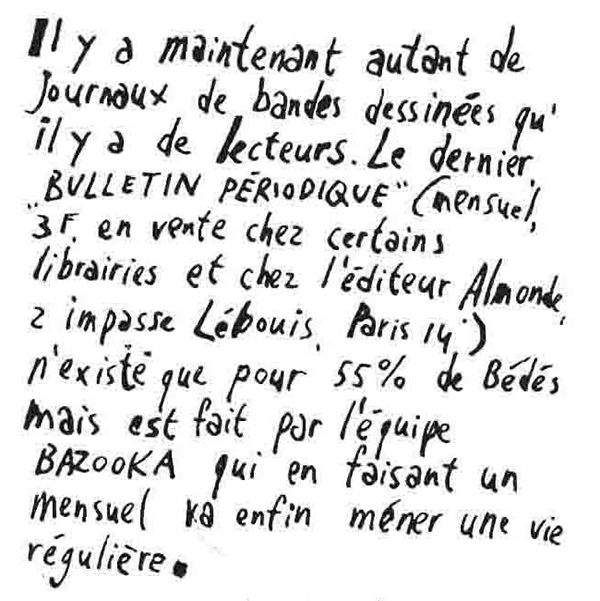 Il y a maintenant autant de
Journaux de bandes dessinées qu'
il y a de lecteurs. Le dernier,
"BULLETIN PÉRIODIQUE" (mensuel,
3F. en vente chez certains
librairies et chez l'éditeur Almonde,
2 impasse Lébouis, Paris 14°)
n'existe que pour 55% de Bédés
mais est fait par l'équipe
BAZOOKA qui en faisant un
mensuel va enfin méner une vie
régulière.